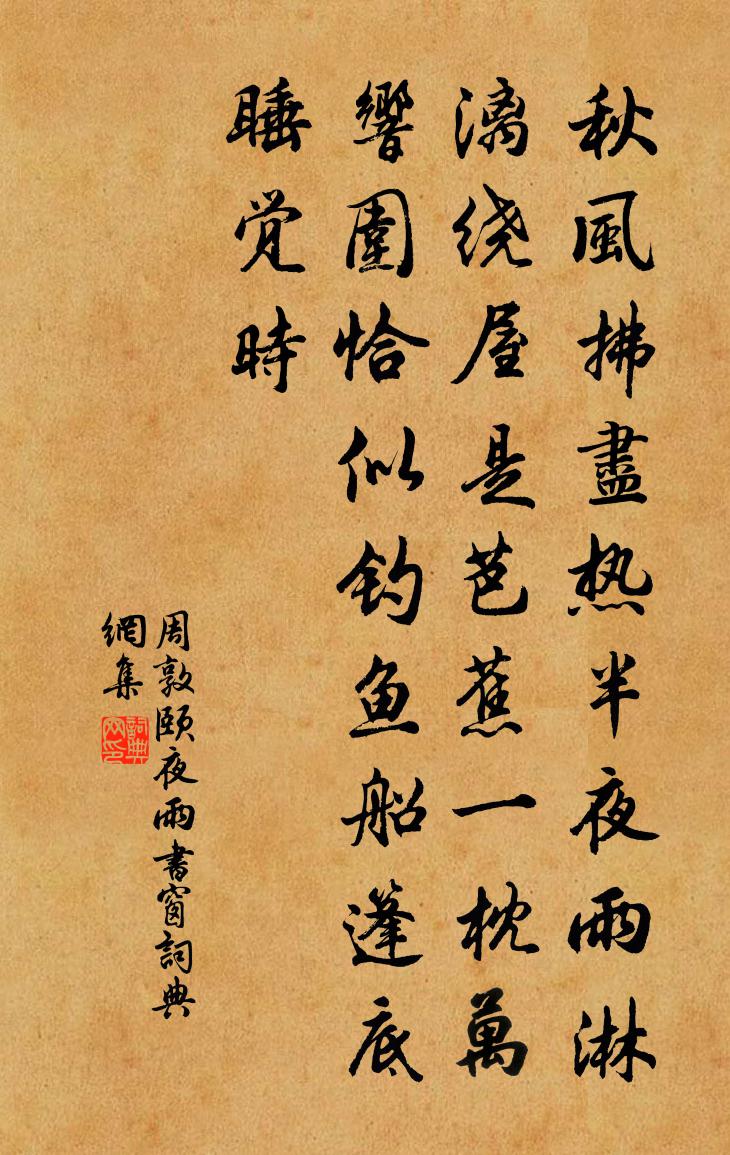 秋風拂盡热半夜雨淋
漓绕屋是芭蕉一枕萬
響圍恰似钓鱼船篷底
睡觉時
周敦頤夜雨書窗詞典
網集
詞典網印